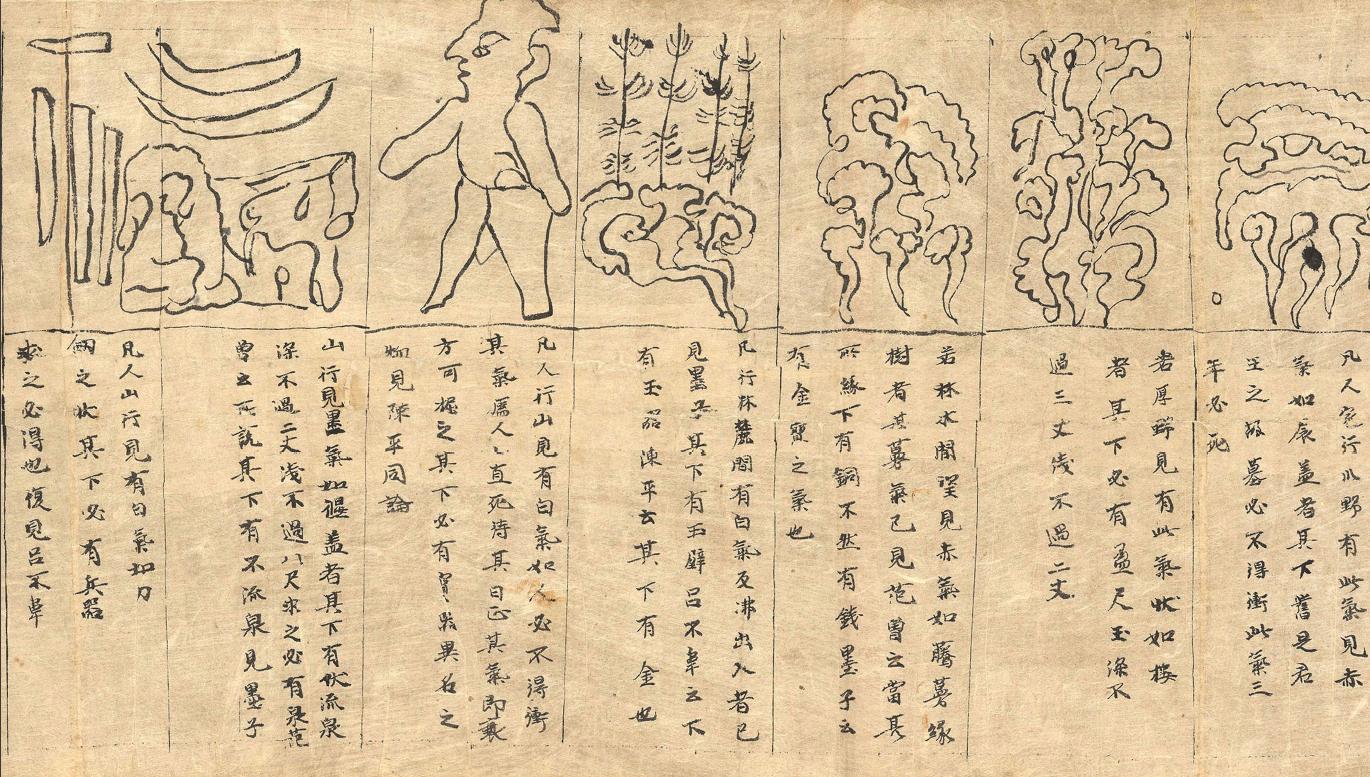 凡人宅行水野有此氣見赤
氣如展蓋者其下嘗是君
王之故墓必不得衝此氣三
年必死
若厚野見有此氣狀如樓
者其下必有盈尺玉深不
過三丈淺不過二丈
若林木間望見赤氣如騰蔓緣
樹者其蔓氣已見范曾云當其
所緣下有銅不然有錢墨子云
有金寶之氣也
凡行林麓間有白氣及沸出入者已
見墨子其下有玉璧呂不韋云下
有玉器陳平云其下有金也
凡人行山見有白氣如人必不得衝
其氣厲人人直死待其日正其氣即衰
方可掘之其下必有寶器異名之
物見陳平同論
山行見墨氣如偃蓋者其下有伏流泉
深不過二丈淺不過八尺求之必有泉范
曾云所說其下有不流泉見墨子
凡人山行見有白氣如刀
劒之狀其下必有兵器
求之必得也復見呂不韋